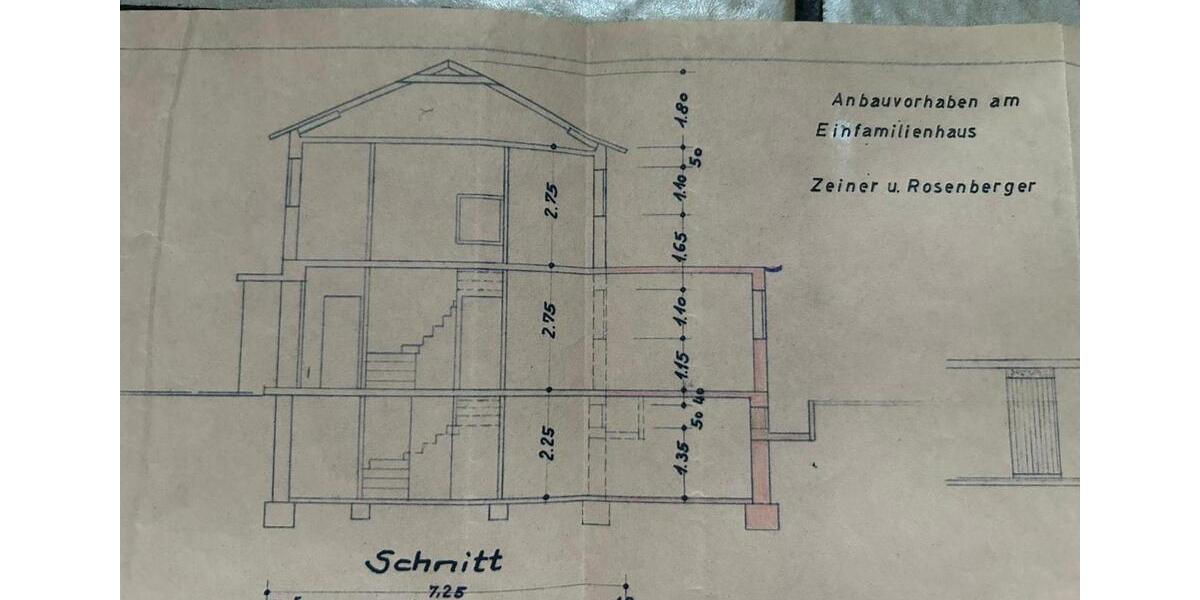 Anbauvorhaben am
Einfamilienhaus
Zeiner u. Rosenberger
1.80
50
1.10
2.75
1.65
2.75
1.10
1.15
40
50
2.25
1.35
Schnitt
7,25